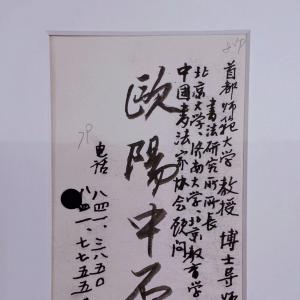 首都师范大学 教授 博士导师
书法研究所所长
北京大学、济南大学、北京教育学
中国书法家协会顾问
歐陽中石
电话
八四一·三八五〇
八四一·七七五五